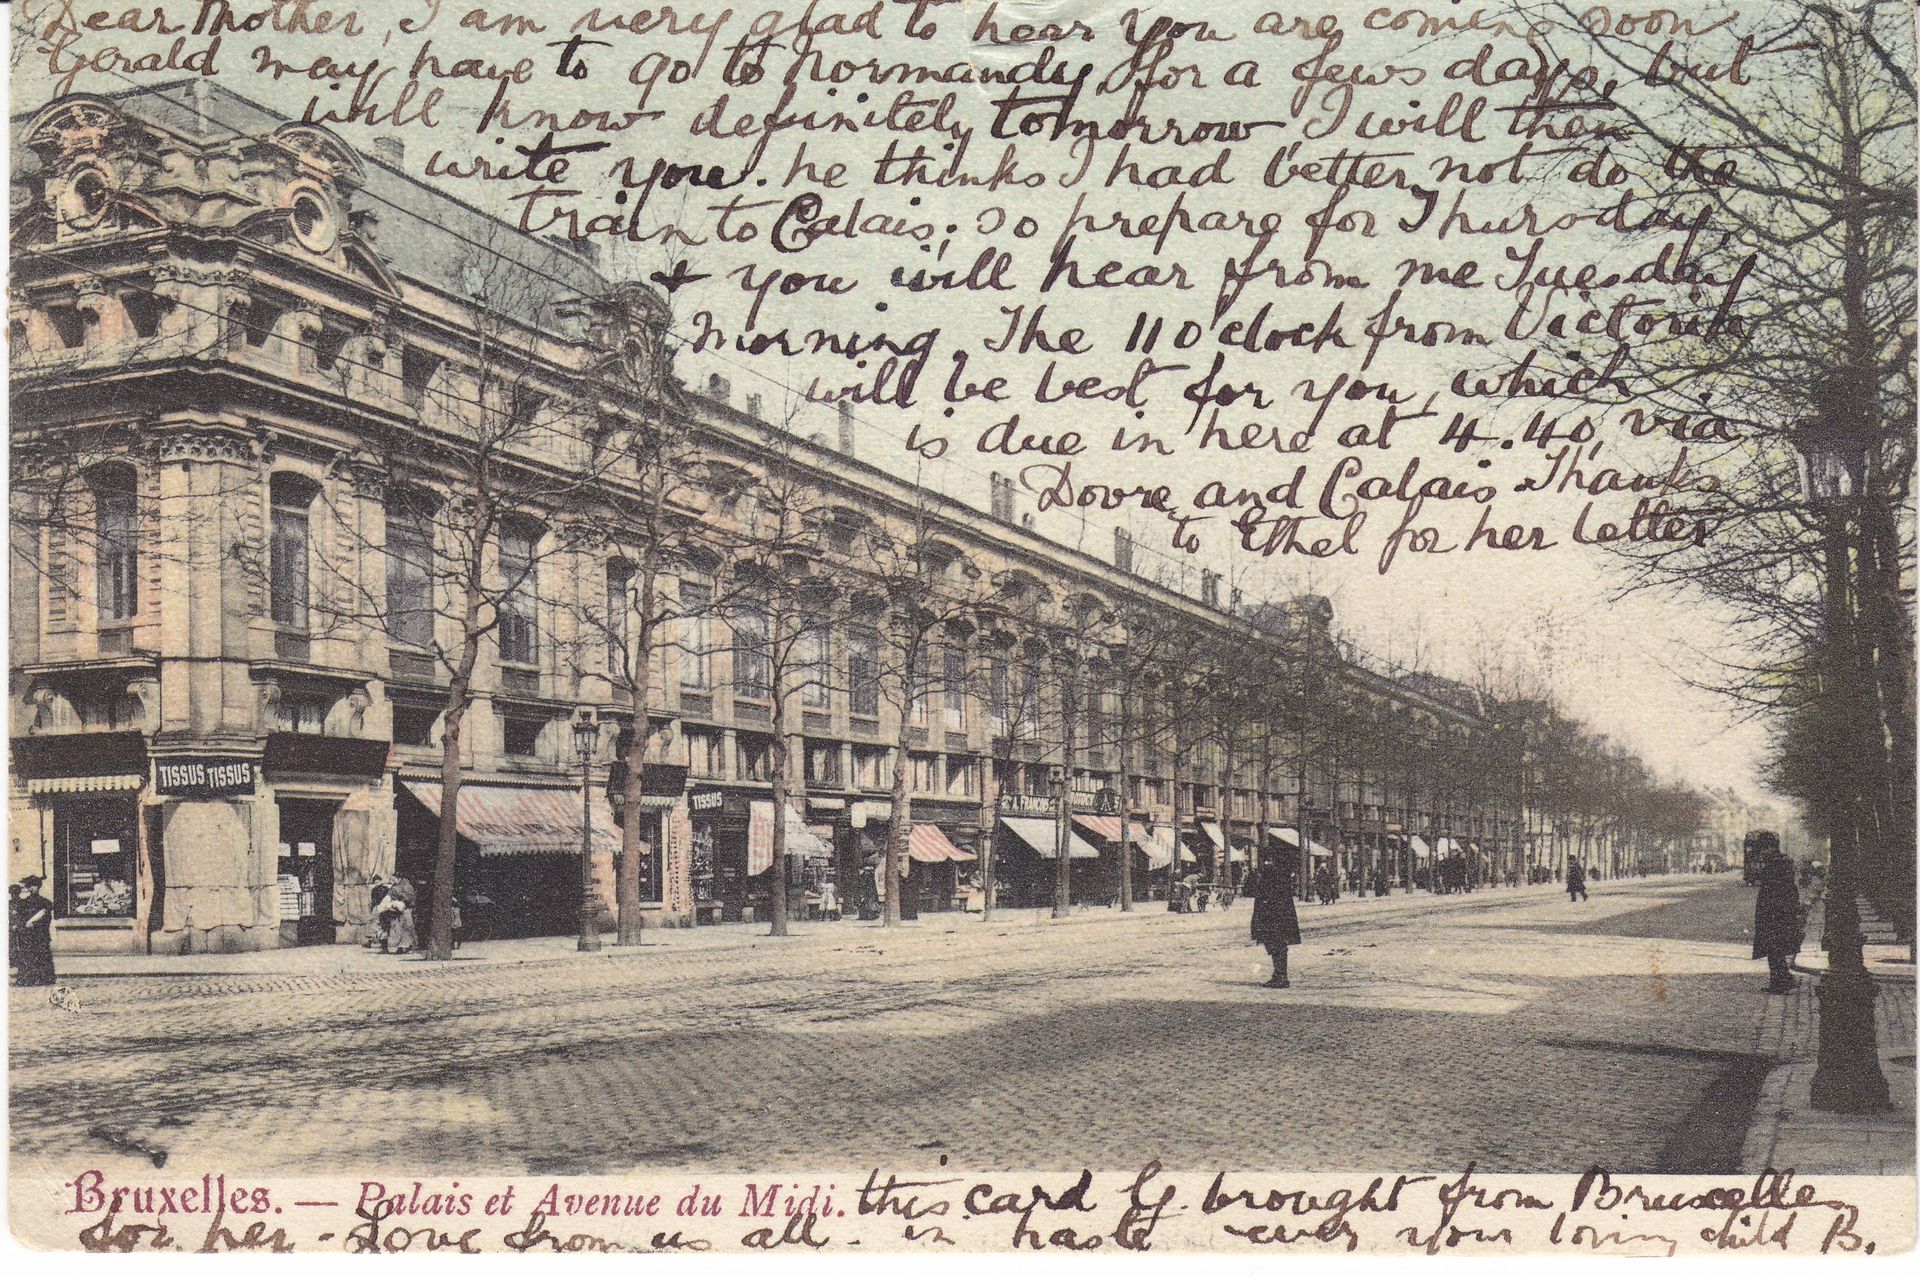 Dear Mother, I am very glad to hear you are coming soon
Gerald may have to go to Normandy for a fews days, but
will know definitely tomorrow, I will then
write you. he thinks I had better not do the
train to Calais; so prepare for Thursday,
+ you will hear from me Tuesday
morning. The 11 o'clock from Victoria
will be best for you, which
is due in here at 4.40, via
Dovre and Calais. Thanks
to Ethel for her letter
TISSUS TISSUS
TISSUS
A. FRANÇOIS
Bruxelles. — Palais et Avenue du Midi. this card G. brought from Bruxelles
for her - Love from us all - in haste ever your loving child B.